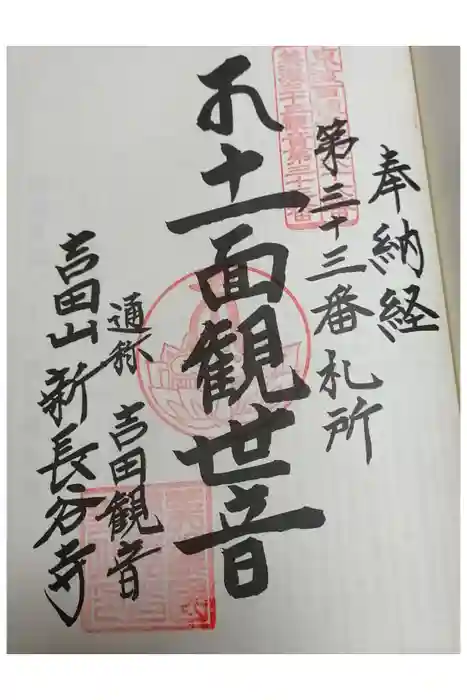 奉納経
第三十三番札所
十一面観世音
通称 吉田観音
吉田山 新長谷寺